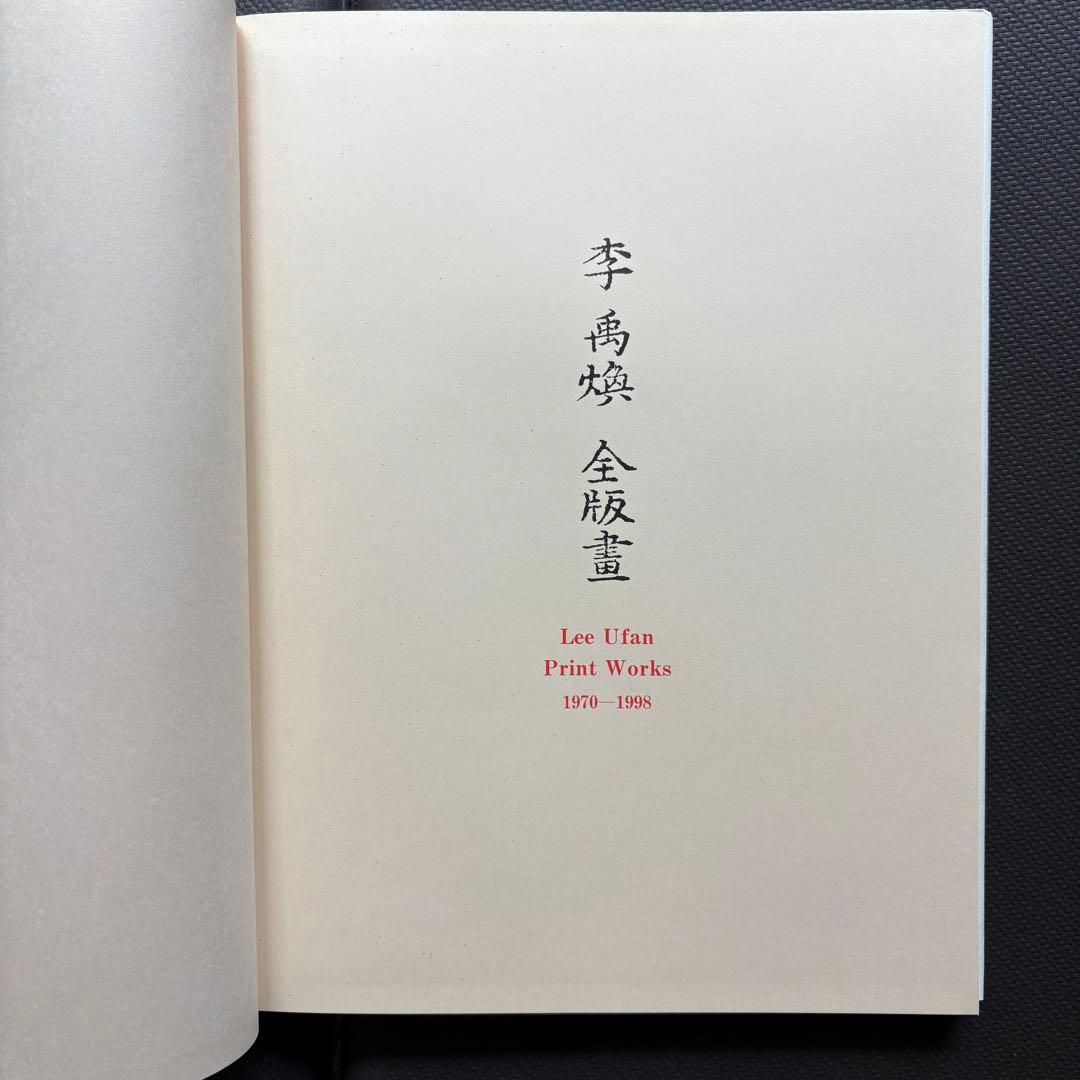 李禹煥 全版畫
Lee Ufan
Print Works
1970—1998